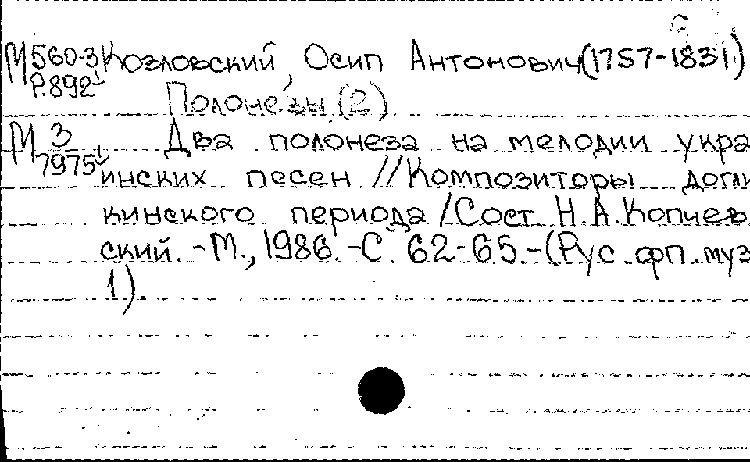 С
М 560-3 Козловский, Осип Антонович (1757-1831)
Р.892 Полонезы (2)
М 3 Два полонеза на мелодии укра
7975 инских песен // Композиторы догли
кинского периода / Сост. Н.А. Копчев
ский. - М., 1986. - С. 62-65. - (Рус. фп. муз
1).